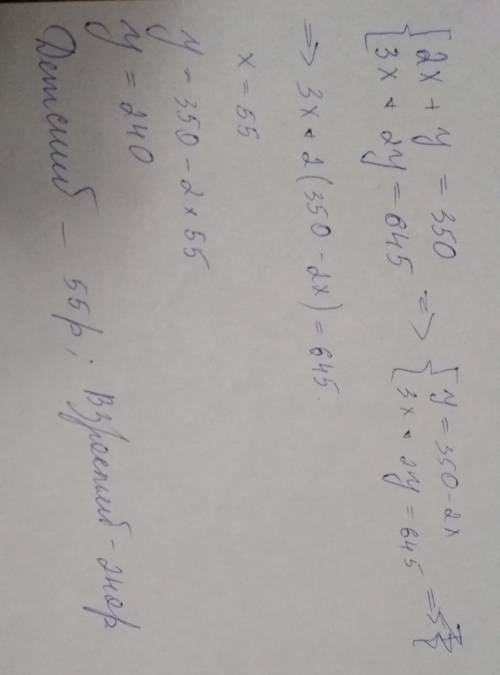 { 2x + y = 350
{ 3x + 2y = 645 => { y = 350 - 2x
{ 3x + 2y = 645 =>
=> 3x + 2(350 - 2x) = 645.
x = 55
y = 350 - 2 × 55
y = 240
Детский - 55р; Взрослый - 240р